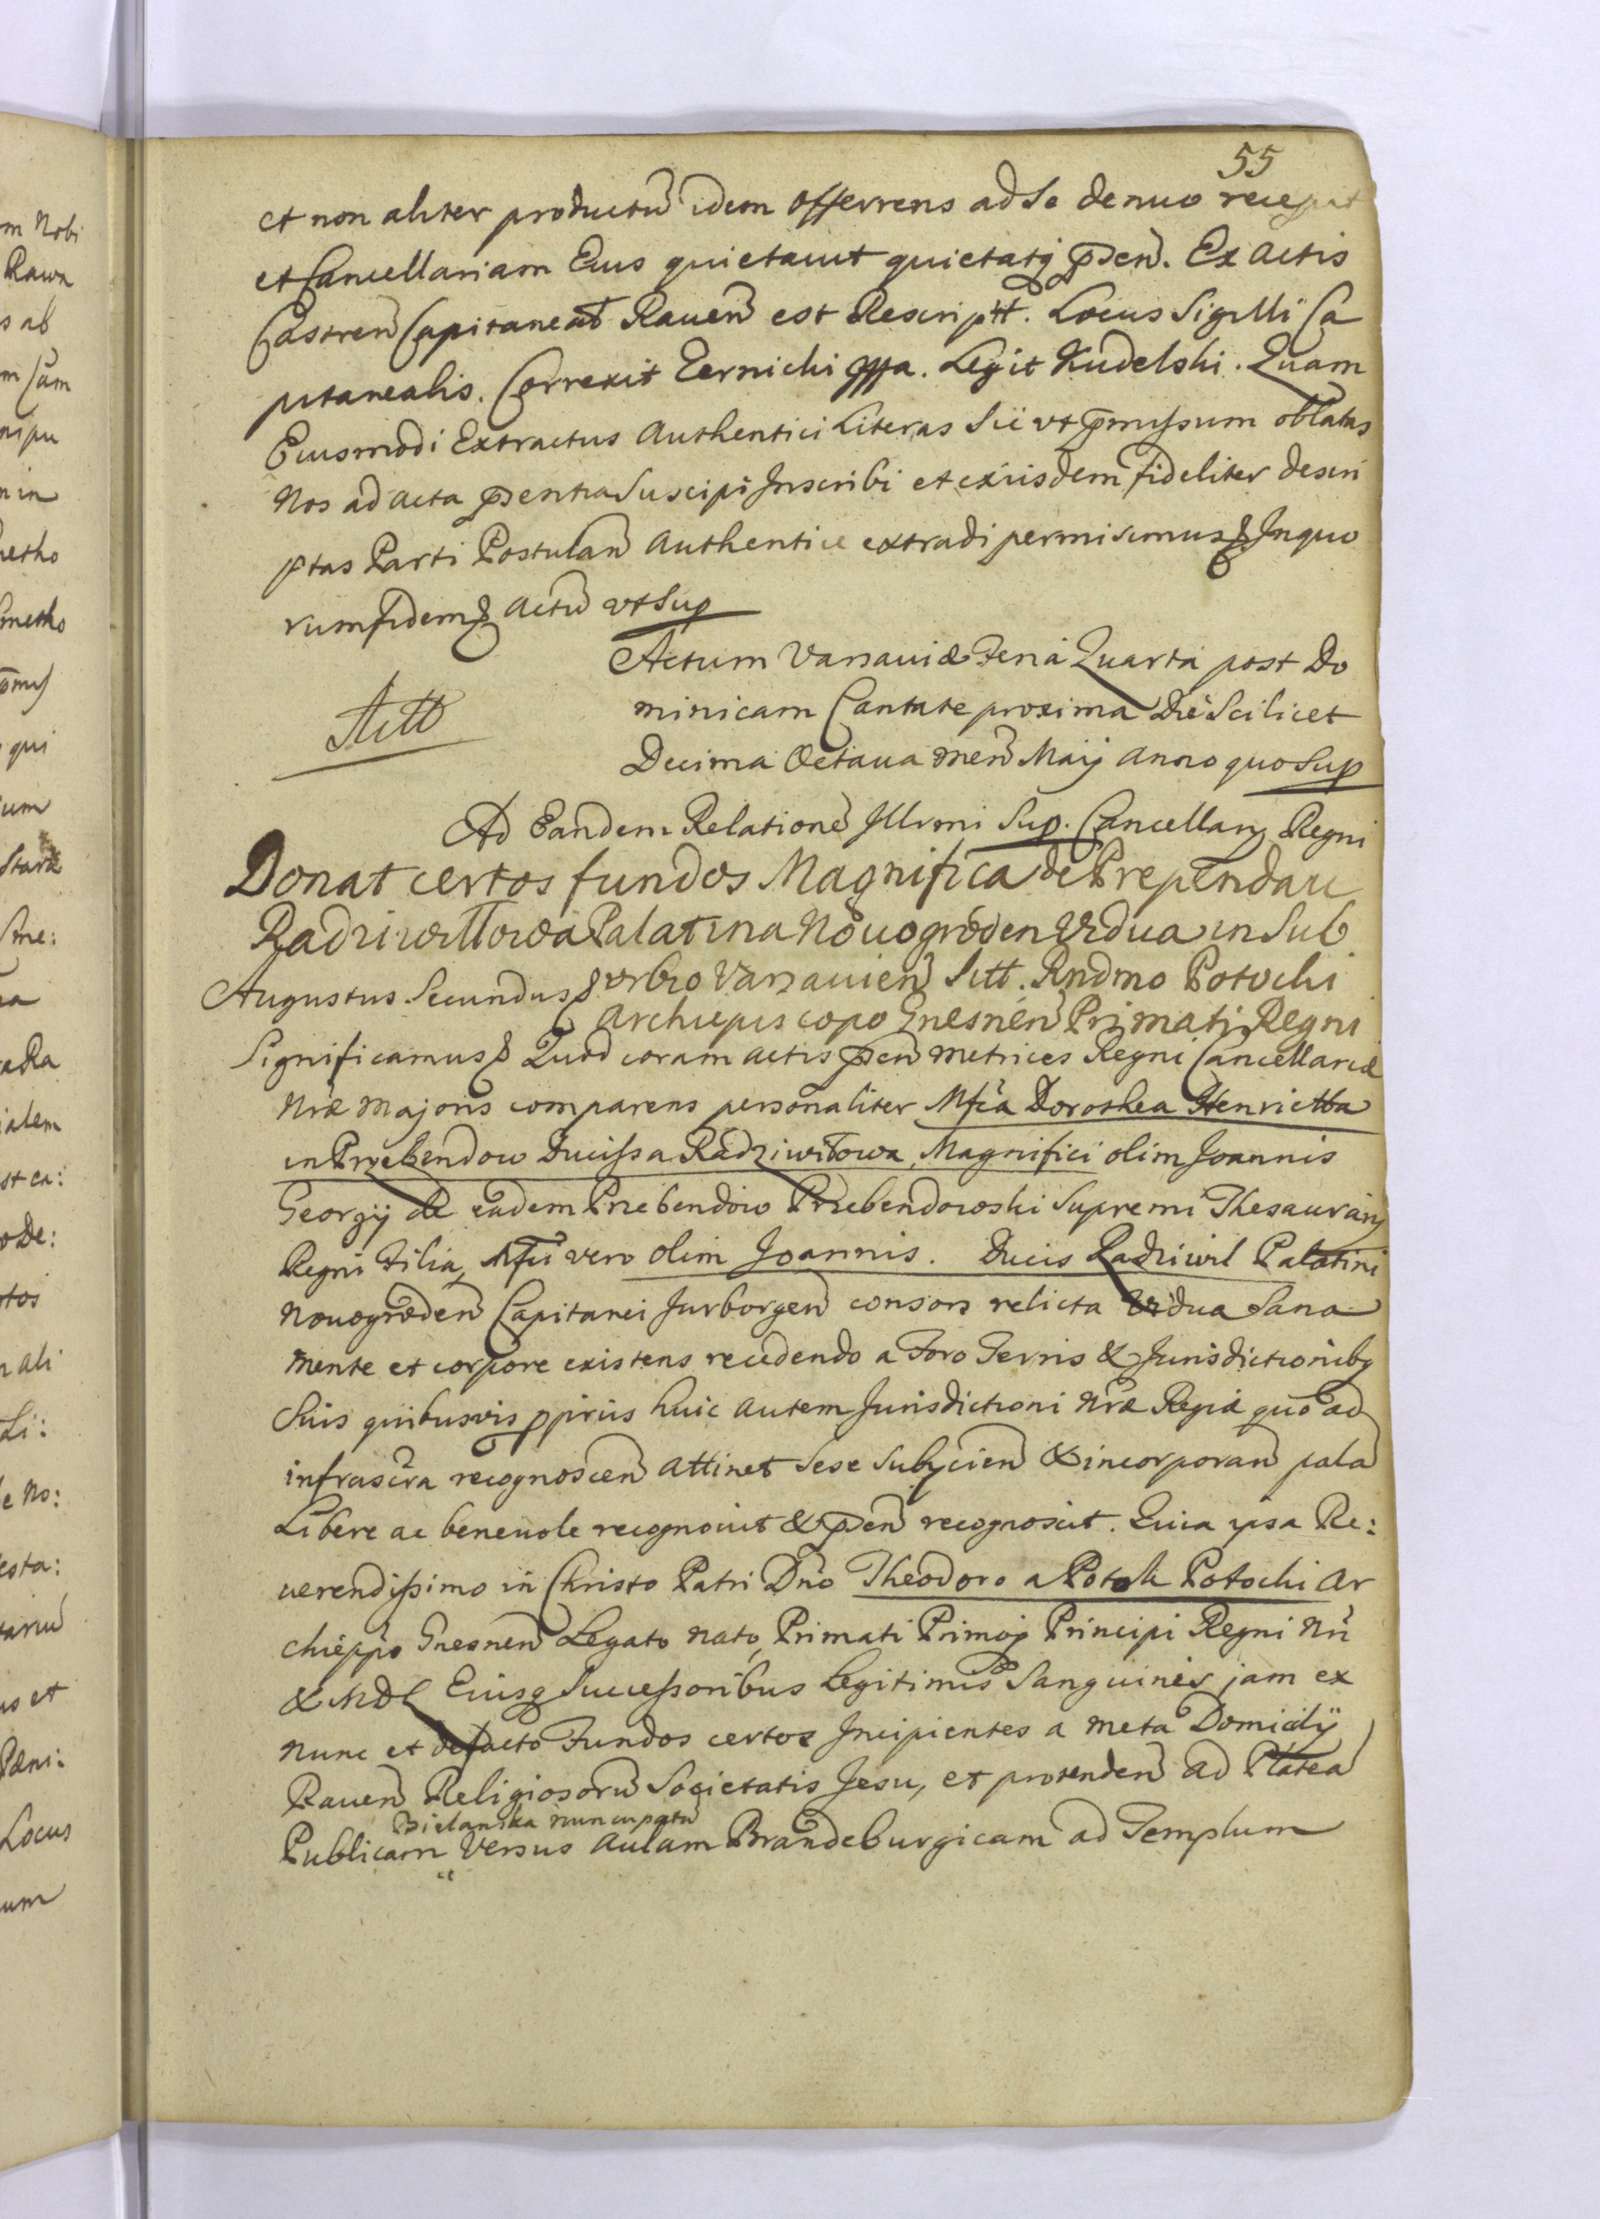 55
et non aliter productũ idem offerrens ad se denuo recepit
et Cancellariam Eius quietauit quietatq pñsen. Ex Actis
Castren Capitaneat Rauen est Rescriptt. Locus Sigilli Ca
pitanealis. Correxit Legit Kudelski. Quam
Eiusmodi Extractus Authentici Literas Sic vt pmissum oblatas
Nos ad acta psentia Suscipi Inscribi et exiisdem fideliter descri
ptas Parti Postulan Authentice extradi permisimus & Inquo
rum fidem & Actũ vt Sup
Actum Varsauiæ Feria Quarta post Do
minicam Cantate proxima Die Scilicet
Decima Octaua Men Maij Anno quo Sup
Ad Eandem Relationẽ Illrmi Sup. Cancellarij Regni
Donat certos fundos Magnifica de Prependau
Radziwiłłowa Palatina Nouogroden Vidua in Sub
Augustus Secundus & urbio Varsauien Sitt. Rndmo Potocki
Archiepiscopo Gnesnen Primati Regni
Significamus & Quod coram actis psen Metrices Regni Cancellariæ
Nræ Majoris comparens personaliter Mfca Dorothea Henrietta
in Przebendow Ducissa Radziwiłowa, Magnifici olim Joannis
Georgij de eadem Przebendow Przebendowski Supremi Thesaurarij
Regni Filia, Mfci vero olim Joannis. Ducis Radziwil Palatini
Nouogroden Capitanei Jurborgen consors relicta Vidua Sana
mente et corpore existens recedendo a Foro Terris & Jurisdictionibq
Suis quibusvis pprijs huic autem Jurisdictioni Nræ Regiæ quo ad
infrascra recognoscen Attinet Sese Subijcien & incorporan pala
Libere ac beneuole recognouit & psen recognoscit. Quia ipsa Re:
uerendissimo in Christo Patri Dño Theodoro a Potok Potocki Ar
chieppo Gnesnen Legato nato, Primati Primoq Principi Regni Nri
& MDL Eiusq Successoribus Legitimis Sanguinis jam ex
nunc et defacto Fundos certos Incipientes a meta Domicilij
Rauen Religiosorũ Societatis Jesu, et protenden ad Platea
Bielanska nuncupatũ
Publicam Versus Aulam Brandeburgicam ad Templum